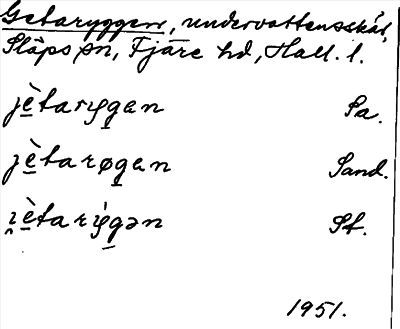 Getaryggen, undervattensskär,
Släps sn, Fjäre hd, Hall. l.
jè̠taryg̠en Sa.
jè̠tarøg̠en Sand.
i̯è̠tarýg̠ən St.
1951.